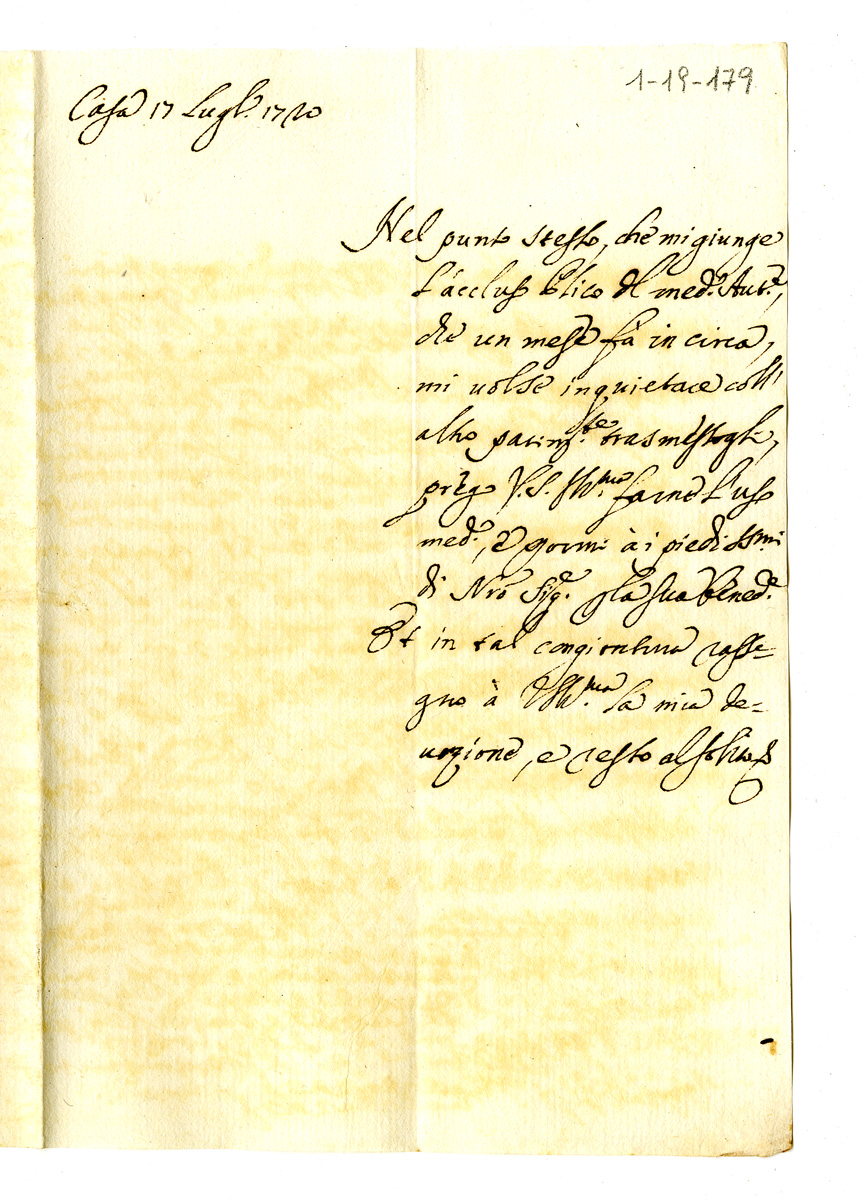 1-19-179
Casa 17 Lugl.º 1720
Nel punto stesso, che mi giunge
l'accluso del med.º Aut.e,
che un mese fà in circa,
mi volse inquietare coll'
altro parim.te trasmessogli,
prego V.S. Ill.ma farne l'uso
med.º, e pormi à i piedi SSmi
di Nrō Sig.e la sua bened.e
Et in tal congiontura rasse=
gno à VSIll.ma la mia de=
uozione, e resto al solito